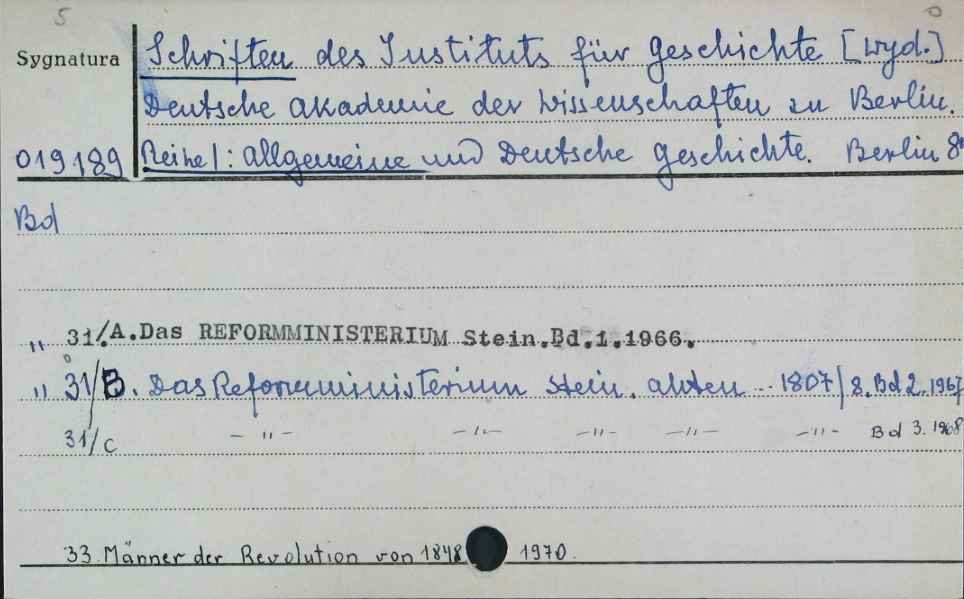 5 0
Sygnatura Schriften des Instituts für Geschichte [wyd.]
Deutsche Akademie der Wissenschaften zu Berlin.
019189 Reihe I: Allgemeine und Deutsche Geschichte. Berlin 8°
Bd
" 31/A. Das REFORMMINISTERIUM Stein. Bd.1.1966.
" 31/B. Das Reformministerium Stein. Akten .. 1807/8. Bd 2. 1967
31/C — " — — " — — " — — " — — " — Bd 3. 1968
33. Männer der Revolution von 1848 1970.